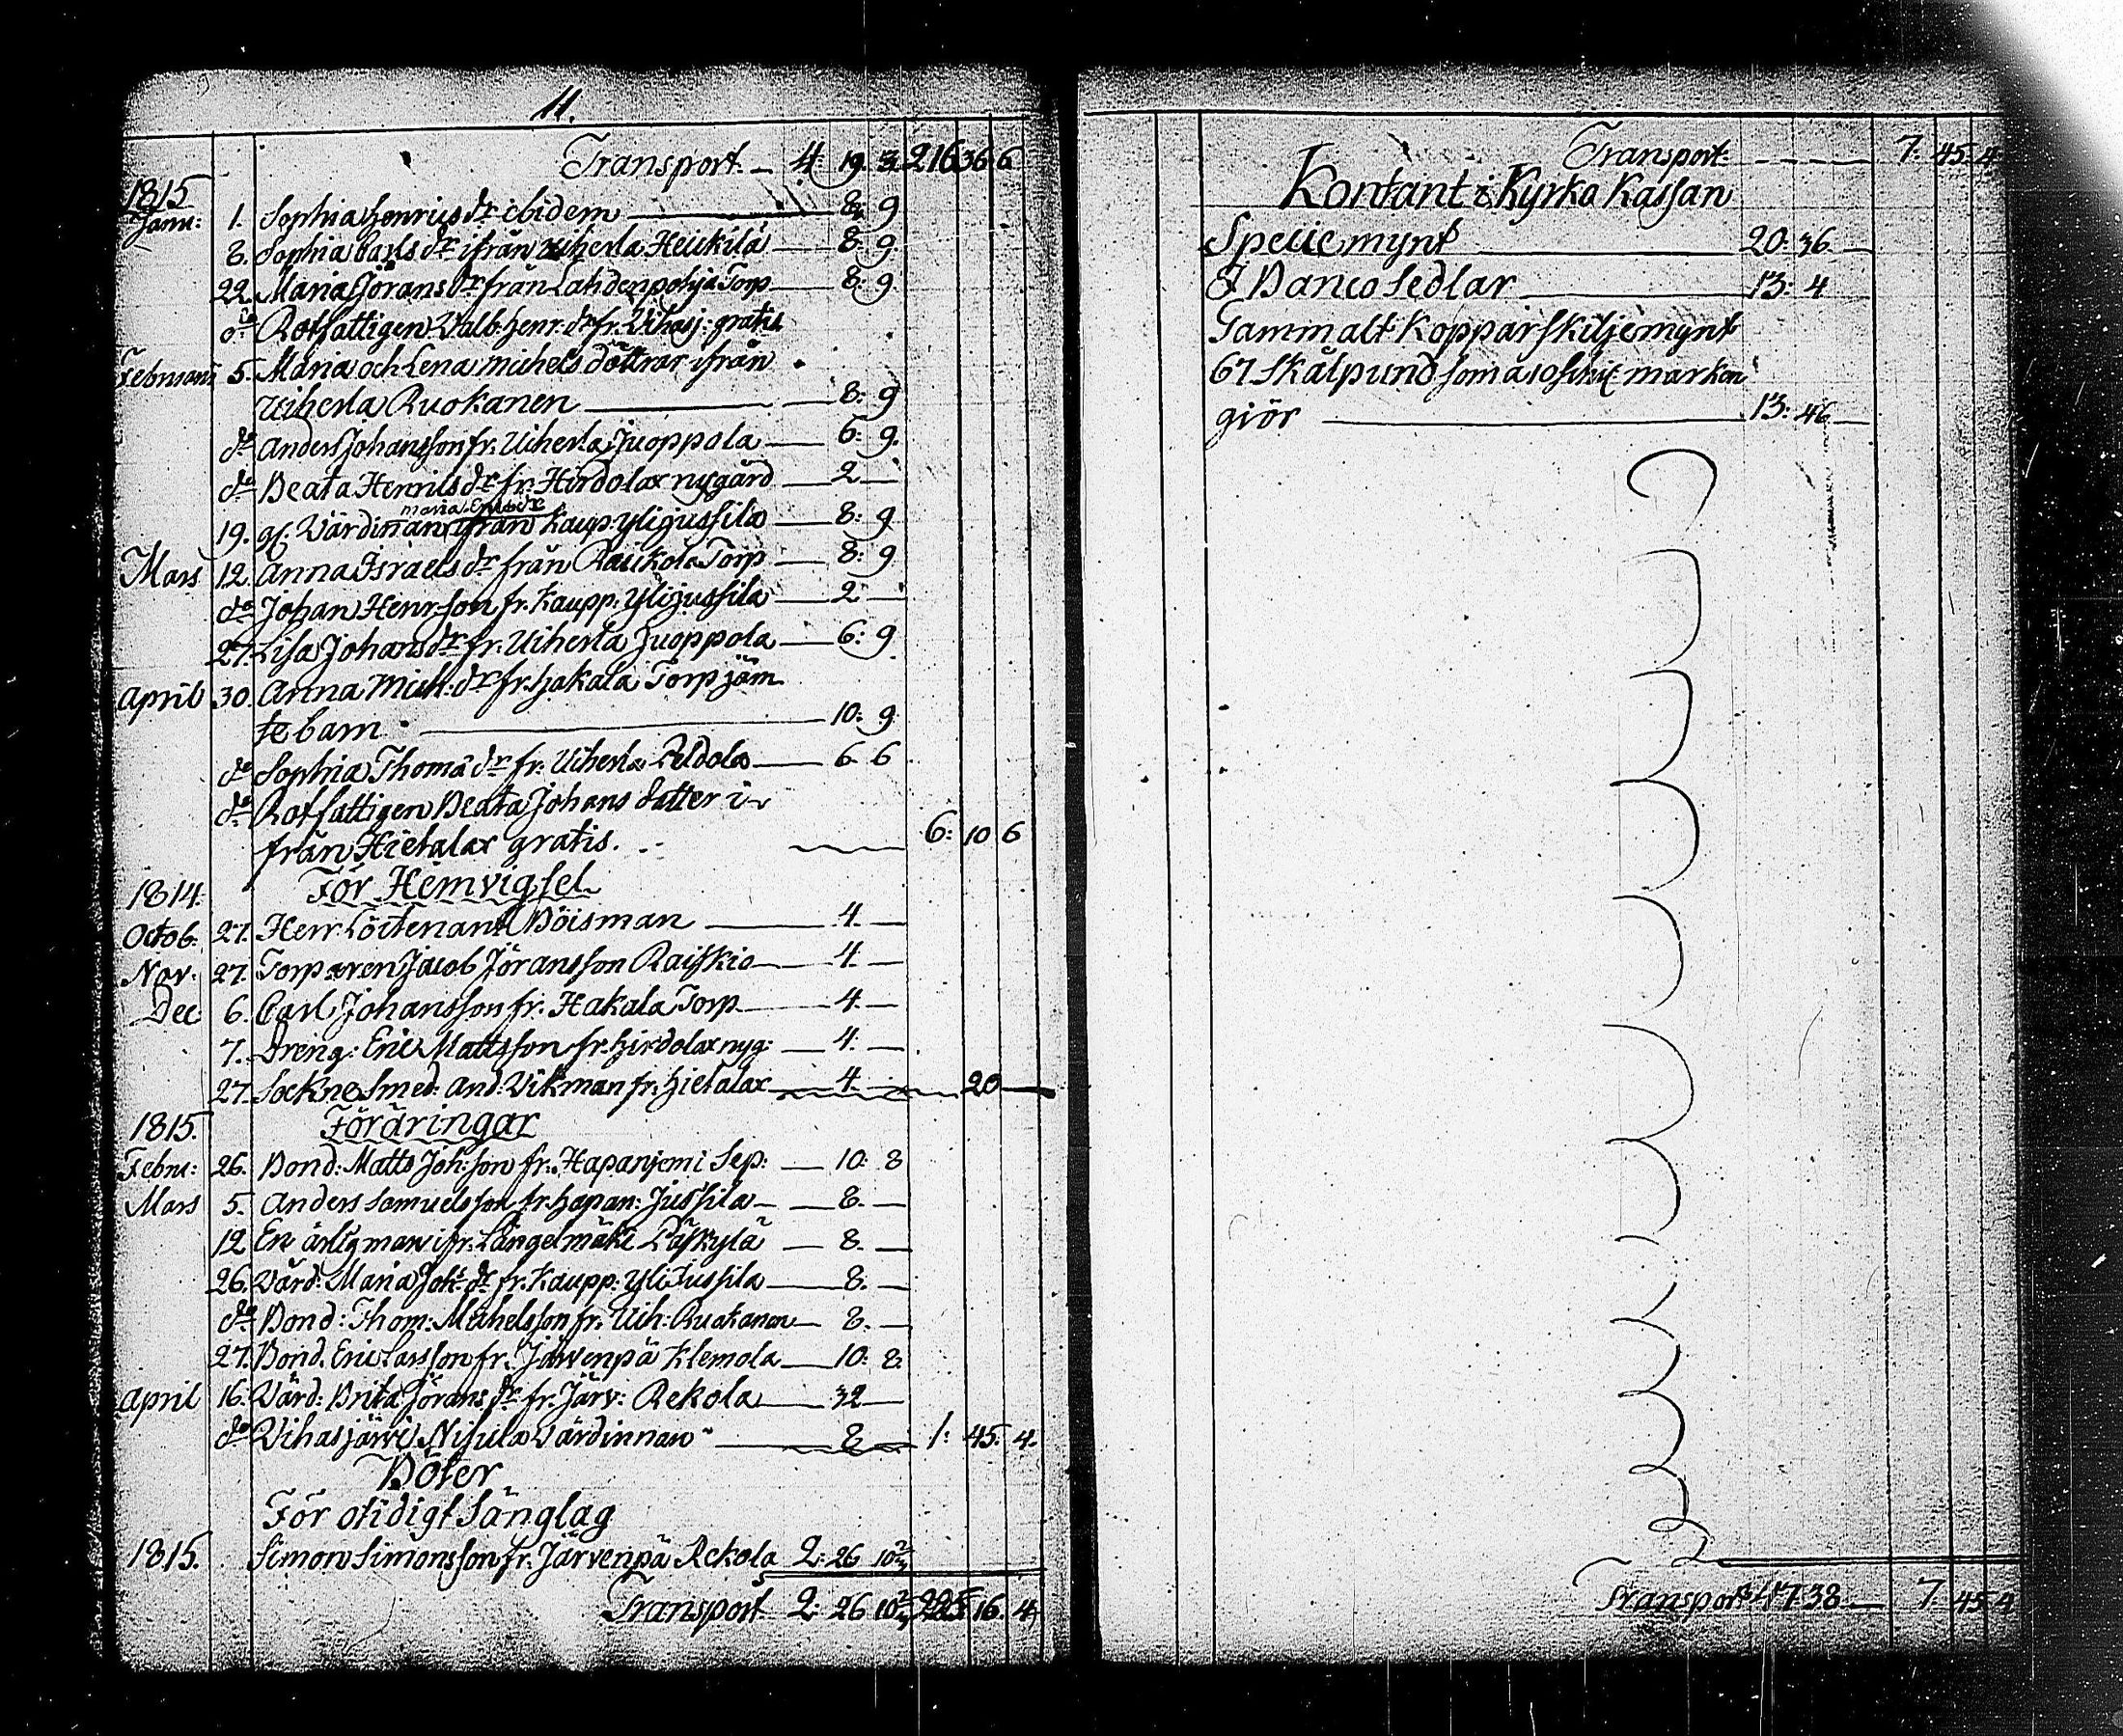 11.
Transport 4. 19. 3. 216 36 6
1815
Janu: 1. Sophia Henrics dr ibidem 8. 9
8. Sophia Carls dr ifrån Uiherla Heickilä 8. 9.
22. Maria Jörans dr från Lahdenpohja Torp 8: 9
do Rotfattigen Walb: Henr: dr fr. Vihasj: gratis
Februarii 5. Maria och Lena Michels döttrar ifrån
Uiherla Ruokanen 8: 9
do Anders Johansson fr. Uiherla Juoppola 6: 9.
do Beata Henrics dr fr. Hirdolax nygård 2
maria Ericsdr
19. gl: Värdinnan ifrån Kaup: Ylijussila 8: 9
Mars 12. Anna Israels dr från Raukola Torp 8: 9
do Johan Henr:son fr. Kaupp: Ylijussila 2
27. Lisa Johans dr fr. Uiherla Juoppola 6: 9
April 30. Anna Mich: dr fr. Hakala Torp jäm
te barn 10: 9
do Sophia Thomæ dr fr. Uiherla Peldola 6 6
do Rotfattigen Beata Johans dotter i
från Hietalax gratis. 6: 10 6
För Hemvigsel
1814
Octob: 27. Herr Löitenant Böisman 4.
Nov: 27. Torparen Jacob Jöransson Raiskio 4.
Dec 6. Carl Johansson fr. Hakala Torp 4.
7. Dreng: Eric Mattsson fr. Hirdolax nyg: 4.
27. Sockne Smed: And: Vikman fr. Hietalax 4. 20
1815. Föräringar
Febru: 26. Bond: Matts Joh:son fr. Hapanjemi Sep: 10: 8
Mars 5. Anders Samuelsson fr. Hapan: Jussila 8.
12 En ärlig man ifr. Längelmäki Päskylä 8.
26. Värd: Maria Joh: dr fr. Kaupp: Yli Jussila 8.
do Bond: Thom: Michelsson fr. Uih: Ruokanen 8.
27. Bond. Eric Larsson fr. Järvenpä Klemola 10: 8.
April 16. Värd: Brita Jörans dr fr. Järv: Rekola 32
do Vihasjärvi Nisula värdinnan 8 1: 45. 4.
Böter
För otidigt Sänglag
1815. Simon Simonsson fr. Järvenpä Rekola 2: 26 10 2/3
Transport 2: 26 10 2/3 225 16. 4
Transport 7. 45 4
Kontant i Kyrko Kassan
Specie mynt 20: 36
I Banco Sedlar 13: 4
Gammalt Koppar skiljemynt
67 Skålpund som a 10 skil: marken
giör 13: 46
Transport 47 38 7. 45 4